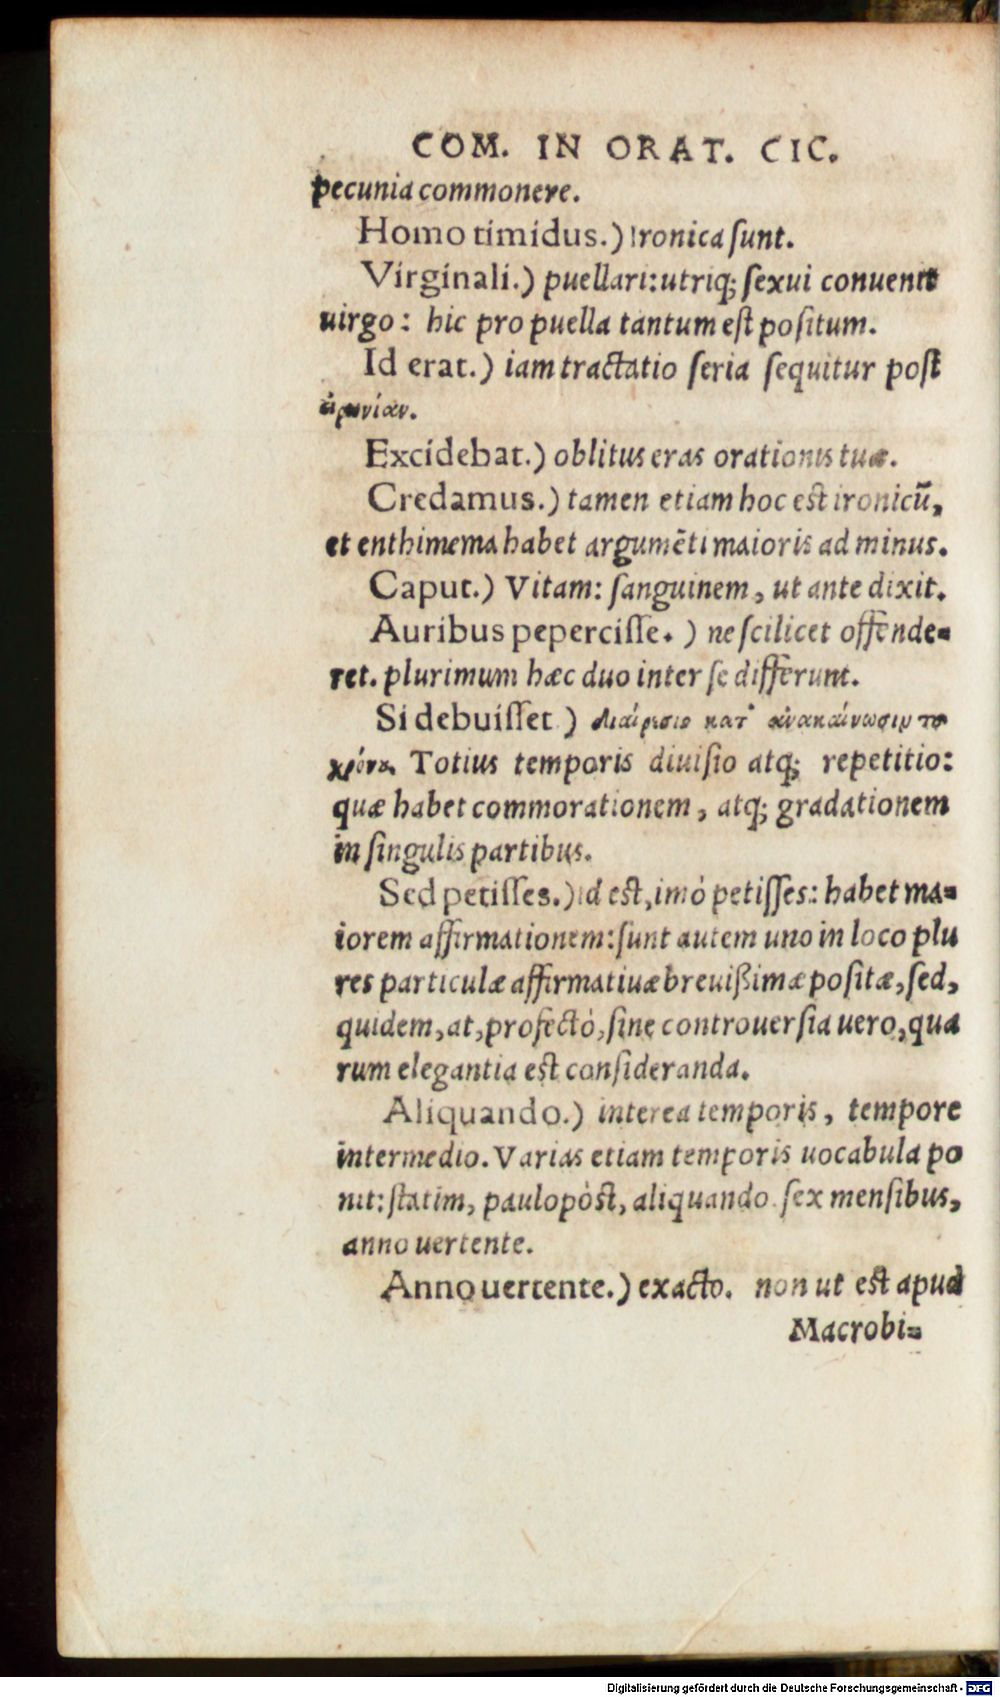 COM. IN ORAT. CIC.
pecunia commonere.
Homo timidus.) Ironica ſunt.
Virginali.) puellari: utriq; ſexui conuenit
uirgo: hic pro puella tantum eſt poſitum.
Id erat.) iam tractatio ſeria ſequitur poſt
Excidebat.) oblitus eras orationis tuæ.
Credamus.) tamen etiam hoc eſt ironicū,
et enthimema habet argumēti maioris ad minus.
Caput.) Vitam: ſanguinem, ut ante dixit.
Auribus peperciſſe.) ne ſcilicet offende=
ret. plurimum hæc duo inter ſe differunt.
Si debuiſſet.) κατ'
Totius temporis diuiſio atq; repetitio:
quæ habet commorationem, atq; gradationem
in ſingulis partibus.
Sed petiſſes.) id eſt, imò petiſſes: habet ma=
iorem affirmationem: ſunt autem uno in loco plu
res particulæ affirmatiuæ breuißimæ poſitæ, ſed,
quidem, at, profectò, ſine controuerſia uero, qua
rum elegantia eſt conſideranda.
Aliquando.) interea temporis, tempore
intermedio. Varias etiam temporis uocabula po
nit: ſtatim, paulopòſt, aliquando. ſex menſibus,
anno uertente.
Anno uertente.) exacto. non ut eſt apud
Macrobi=
Digitalisierung gefördert durch die Deutsche Forschungsgemeinschaft - DFG